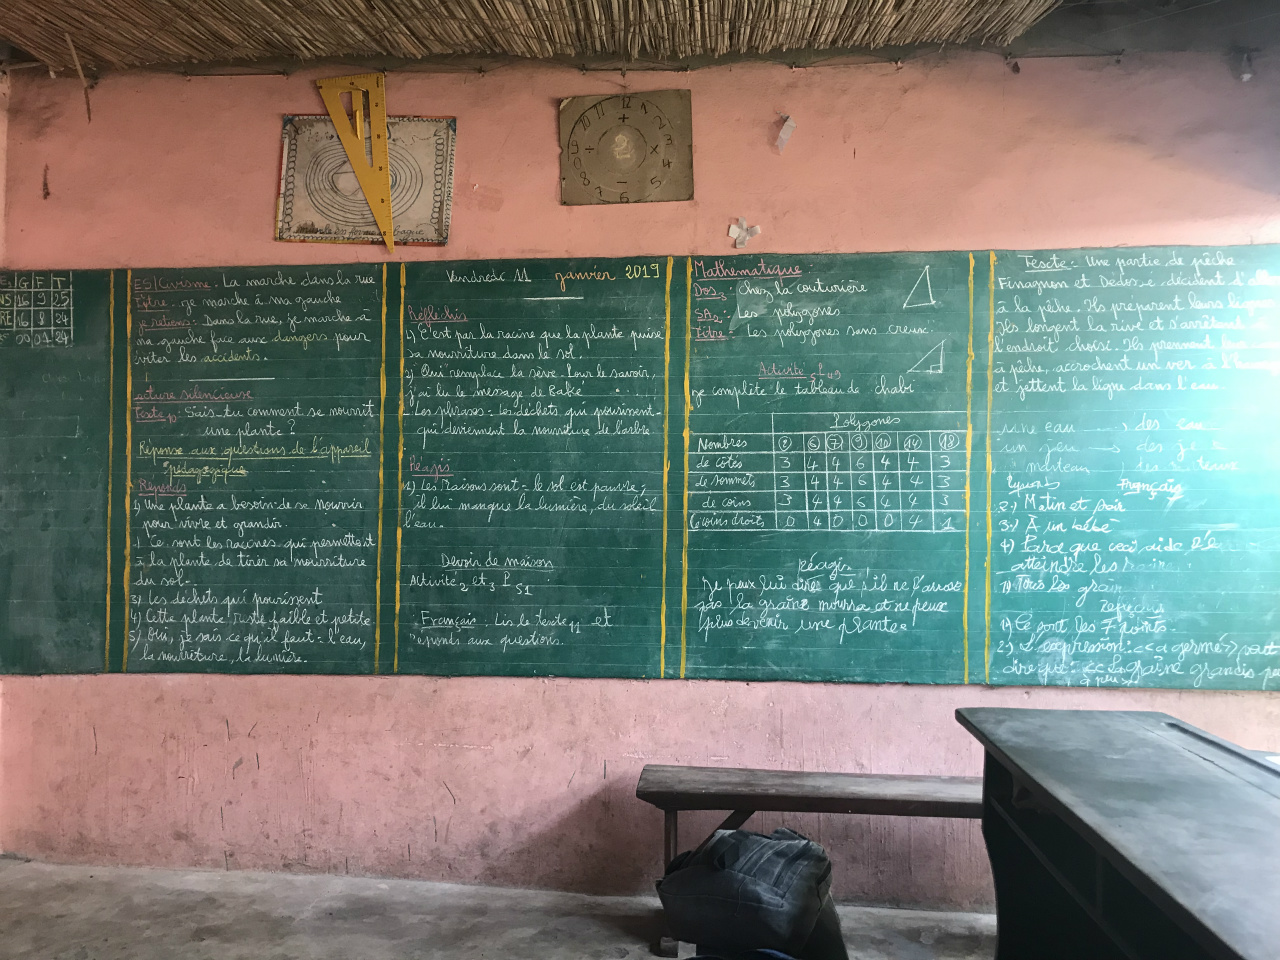 12
11
1
10
2
9
3
8
4
7
5
6
+
÷
x
-
2
G F T
NS 16 9 25
RE 16 8 24
24
ES/Civisme. La marche dans la rue
Titre: je marche à ma gauche
je retiens: Dans la rue, je marche à
ma gauche face aux dangers pour
éviter les accidents.
cture silencieuse
Texte 10: Sais-tu comment se nourrit
une plante?
Réponse aux questions de l'appareil
pédagogique
Réponds
1) Une plante a besoin de se nourrir
pour vivre et grandir.
Ce sont les racines qui permettent
à la plante de tirer sa nourriture
du sol.
3) Les déchets qui pourissent
4) Cette plante reste faible et petite
5) Oui, je sais ce qu'il faut: l'eau,
la nourriture, la lumière.
Vendredi 11 janvier 2019
Réfléchis
1) C'est par la racine que la plante puise
sa nourriture dans le sol.
2) Qui remplace la sève. Pour le savoir,
j'ai lu le message de Baké
Les phrases: Les déchets qui pourissent
qui deviennent la nourriture de l'arbre.
Réagis
Les raisons sont: le sol est pauvre;
il lui manque la lumière, du soleil
l'eau.
Devoir de maison
Activité 2 et 3 P 51
Français: Lis le texte 11 et
réponds aux questions.
Mathématique
Dos 3: Chez la couturière
SA 2: Les polygones
Titre: Les polygones sans creux.
Activité 1
je complète le tableau de chabi
Polygones
Nombres 8 6 7 9 10 14 18
de côtés 3 4 4 6 4 4 3
de sommets 3 4 4 6 4 4 3
de coins 3 4 4 6 4 4 3
Coins droits 0 4 0 0 0 4 1
Réagir
Je peux lui dire que s'il ne l'arrose
pas la graine mourra et ne peux
plus devenir une plante.
Texcte: Une partie de pêche
Finagnon et Dédé décident d'
à la pêche. Ils préparent leurs lignes
Ils longent la rive et s'arrêtent
l'endroit choisi. Ils prennent
à pêche, accrochent un ver à
et jettent la ligne dans l'eau.
une eau → des eau
un → des
marteau les
Français
2) Matin et soir
3) À un bébé
4) Parce que ceci aide
atteindre les
Tous les
1) Ce sont les 7 points.
2) L'expression: <<a germé>> veut
dire que: <<La graine grandis
à peu>>